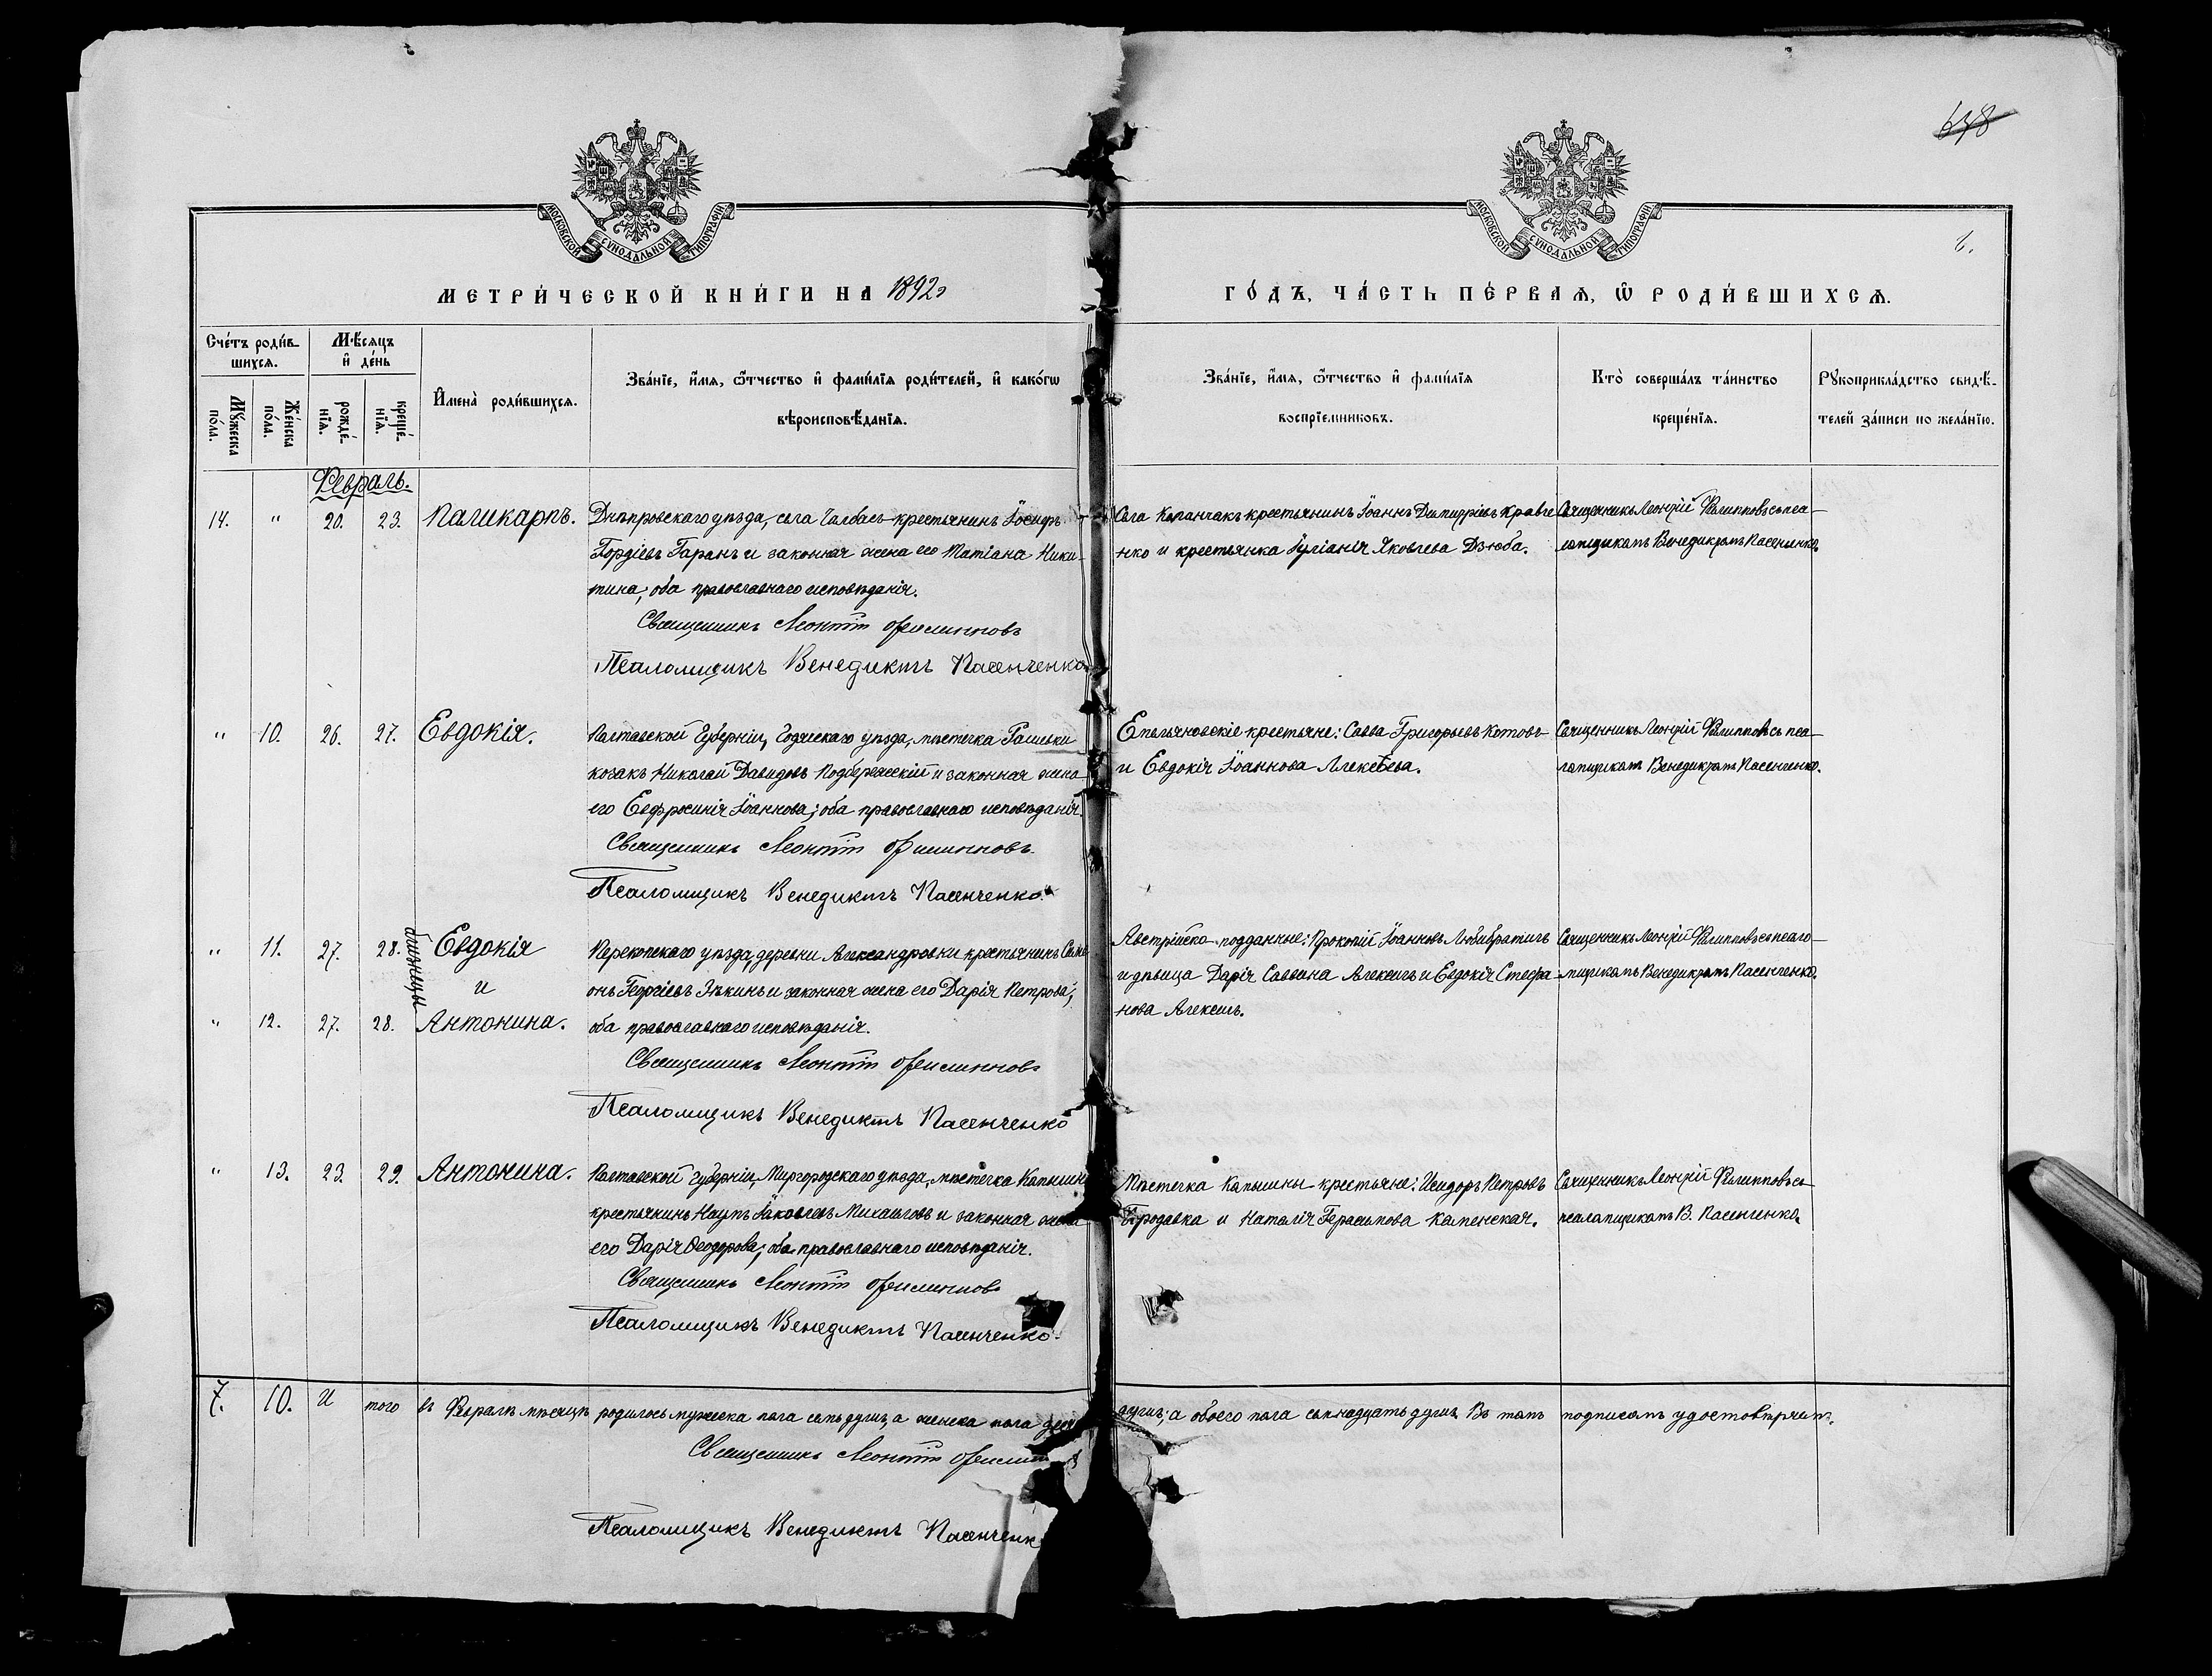 648
МОСКОВСКОЙ СѴНОДАЛЬНОЙ ТИПОГРАФІИ
МОСКОВСКОЙ СѴНОДАЛЬНОЙ ТИПОГРАФІИ
6.
МЕТРИ́ЧЕСКОЙ КНИ́ГИ НА 1892
ГО́ДЪ, ЧА́СТЬ ПЕ́РВАѦ, Ѡ РОДИ́ВШИХСѦ.
Сче́тъ роди́в-
шихсѧ.
Мѣ́сѧцъ
и҆ де́нь
Мꙋ́жеска
по́ла.
Же́нска
по́ла.
рожде́-
нїѧ.
креще́-
нїѧ.
И҆мена̀ роди́вшихсѧ.
Зва́нїе, и҆́мѧ, ѻ҆́тчество и҆ фами́лїѧ роди́телей, и҆ како́гѡ
вѣроисповѣ́данїѧ.
Зва́нїе, и҆́мѧ, ѻ҆́тчество и҆ фами́лїѧ
воспрїемниковъ.
Кто̀ соверша́лъ та́инство
креще́нїѧ.
Рꙋкоприкла́дство свидѣ́-
телей за́писи по жела́нїю.
Февраль.
14. " 20. 23. Паликарпъ.
Днѣпровскаго уѣзда, села Чалбасъ крестьянинъ Іосифъ
Гордіевъ Гаранъ и законная жена его Татіана Ники-
тина; оба православнаго исповѣданія.
Священникъ Леонтій Филипповъ
Псаломщикъ Венедиктъ Пасенченко
Села Каланчакъ крестьянинъ Іоаннъ Димитріевъ Кравче
нко и крестьянка Іуліанія Яковлева Дзюба.
Священникъ Леонтій Филипповъ съ пса-
ломщикомъ Венедиктомъ Пасенченко.
" 10. 26. 27. Евдокія.
Полтавской Губерніи, Годяческаго уѣзда, мѣстечка Рашевки
козакъ Николай Давидовъ Подбережскій и законная жена
его Евфросинія Іоаннова; оба православнаго исповѣданія.
Священникъ Леонтій Филипповъ.
Псаломщикъ Венедиктъ Пасенченко.
Емельяновскіе крестьяне: Савва Григорьевъ Котовъ
и Евдокія Іоаннова Алексѣева.
Священникъ Леонтій Филипповъ съ пса-
ломщикомъ Венедиктомъ Пасенченко.
" 11. 27. 28. близнецы Евдокія
и
" 12. 27. 28. Антонина.
Перекопскаго уѣзда, деревни Александровки крестьянинъ Симе
онъ Георгіевъ Зѣкинъ и законная жена его Дарія Петрова;
оба православнаго исповѣданія.
Священникъ Леонтій Филипповъ
Псаломщикъ Венедиктъ Пасенченко
Австрійско-подданные: Прокопій Іоанновъ Любибратичъ
и дѣвица Дарія Саввина Алексичъ и Евдокія Стефа-
нова Алексичъ.
Священникъ Леонтій Филипповъ съ псало-
мщикомъ Венедиктомъ Пасенченко.
" 13. 23. 29. Антонина.
Полтавской губерніи, Миргородскаго уѣзда, мѣстечка Комышни
крестьянинъ Наумъ Іаковлевъ Михайловъ и законная жена
его Дарія Ѳеодорова; оба православнаго исповѣданія.
Священникъ Леонтій Филипповъ
Псаломщикъ Венедиктъ Пасенченко.
Мѣстечка Комышни крестьяне: Исидоръ Петровъ
Бородавка и Наталія Герасимова Каменская.
Священникъ Леонтій Филипповъ съ
псаломщикомъ В. Пасенченко.
7. 10. И того въ Февралѣ мѣсяцѣ родилось мужеска пола семь душъ, а женска пола
душъ; а обоего пола семнадцать душъ. Въ томъ подписомъ удостовѣряемъ.
Священникъ Леонтій
Псаломщикъ Венедиктъ Пасенченк